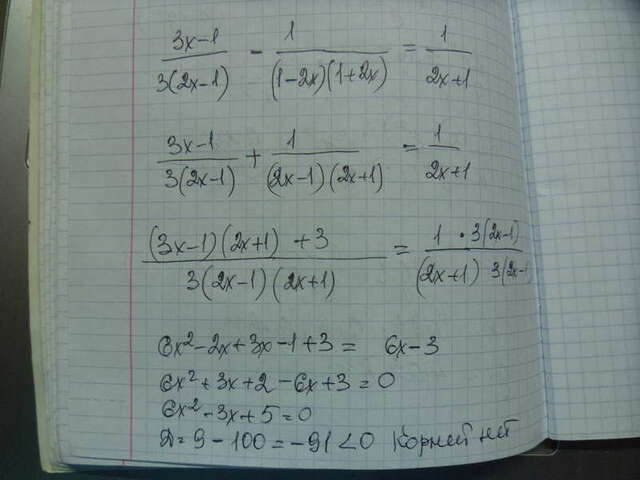 (3x-1)/(3(2x-1)) - 1/((1-2x)(1+2x)) = 1/(2x+1)
(3x-1)/(3(2x-1)) + 1/((2x-1)(2x+1)) = 1/(2x+1)
((3x-1)(2x+1) + 3)/(3(2x-1)(2x+1)) = (1 · 3(2x-1))/((2x+1) 3(2x-
6x² - 2x + 3x - 1 + 3 = 6x - 3
6x² + 3x + 2 - 6x + 3 = 0
6x² - 3x + 5 = 0
D = 9 - 100 = -91 < 0 Корней нет